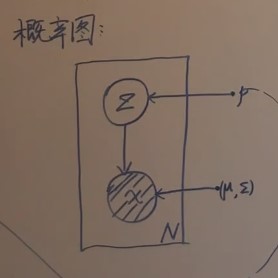 概率图:
Z
p
x
(μ, Σ)
N